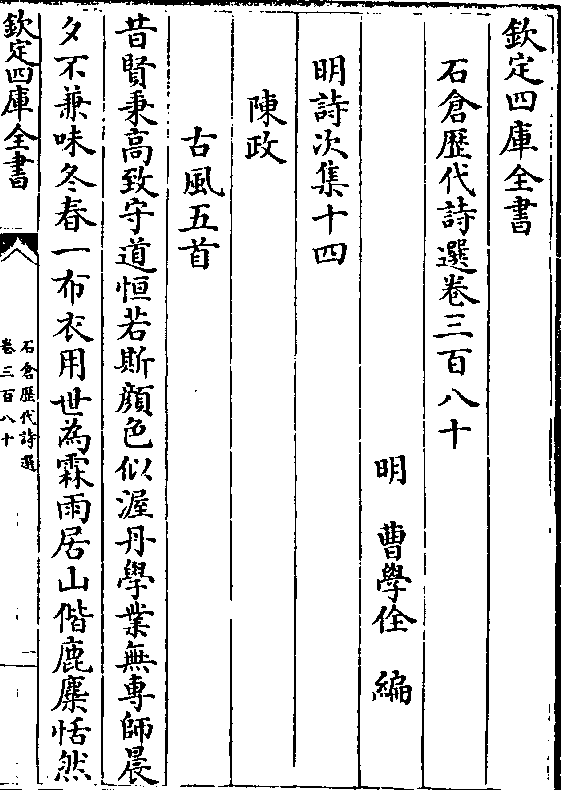 欽定四庫全書
石倉歷代詩選卷三百八十
明　曹學佺　編
明詩次集十四
陳政
古風五首
昔賢秉高致守道恒若斯顔色似渥丹學業無專師晨
夕不兼味冬春一布衣用世為霖雨居山偕鹿麋恬然
欽定四庫全書
石倉歷代詩選
卷三百八十
一